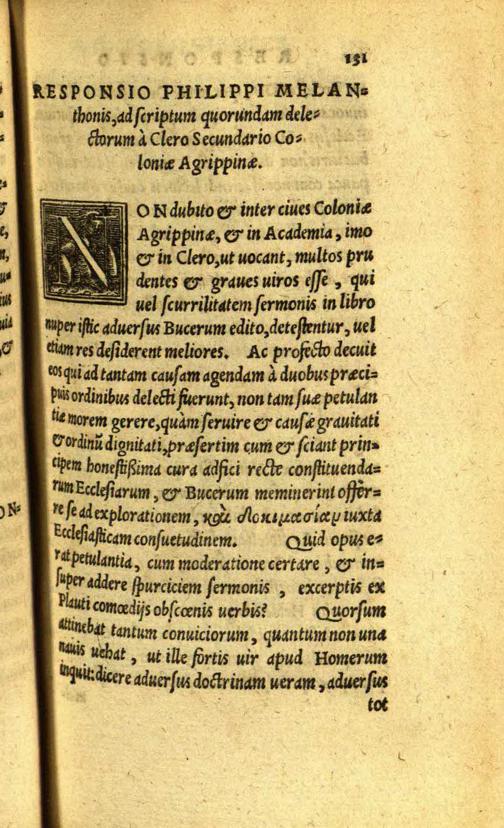 131
RESPONSIO PHILIPPI MELAN=
thonis, ad scriptum quorundam dele=
ctorum à Clero Secundario Co=
loniæ Agrippinæ.
NON dubito & inter ciues Coloniæ
Agrippinæ, & in Academia, imo
& in Clero, ut uocant, multos pru
dentes & graues uiros esse, qui
uel scurrilitatem sermonis in libro
nuper istic aduersus Bucerum edito, detestentur, uel
etiam res desiderent meliores. Ac profecto decuit
eos qui ad tantam causam agendam à duobus præci=
puis ordinibus delecti fuerunt, non tam suæ petulan
tiæ morem gerere, quàm seruire & causæ grauitati
& ordinū dignitati, præsertim cum & sciant prin=
cipem honestißima cura adfici recte constituenda=
rum Ecclesiarum, & Bucerum meminerint offer=
re se ad explorationem, καὶ δοκιμασίαν iuxta
Ecclesiasticam consuetudinem. Quid opus e=
rat petulantia, cum moderatione certare, & in=
super addere spurciciem sermonis, excerptis ex
Plauti comœdijs obscœnis uerbis? Quorsum
attinebat tantum conuiciorum, quantum non una
nauis uehat, ut ille fortis uir apud Homerum
inquit: dicere aduersus doctrinam ueram, aduersus
tot